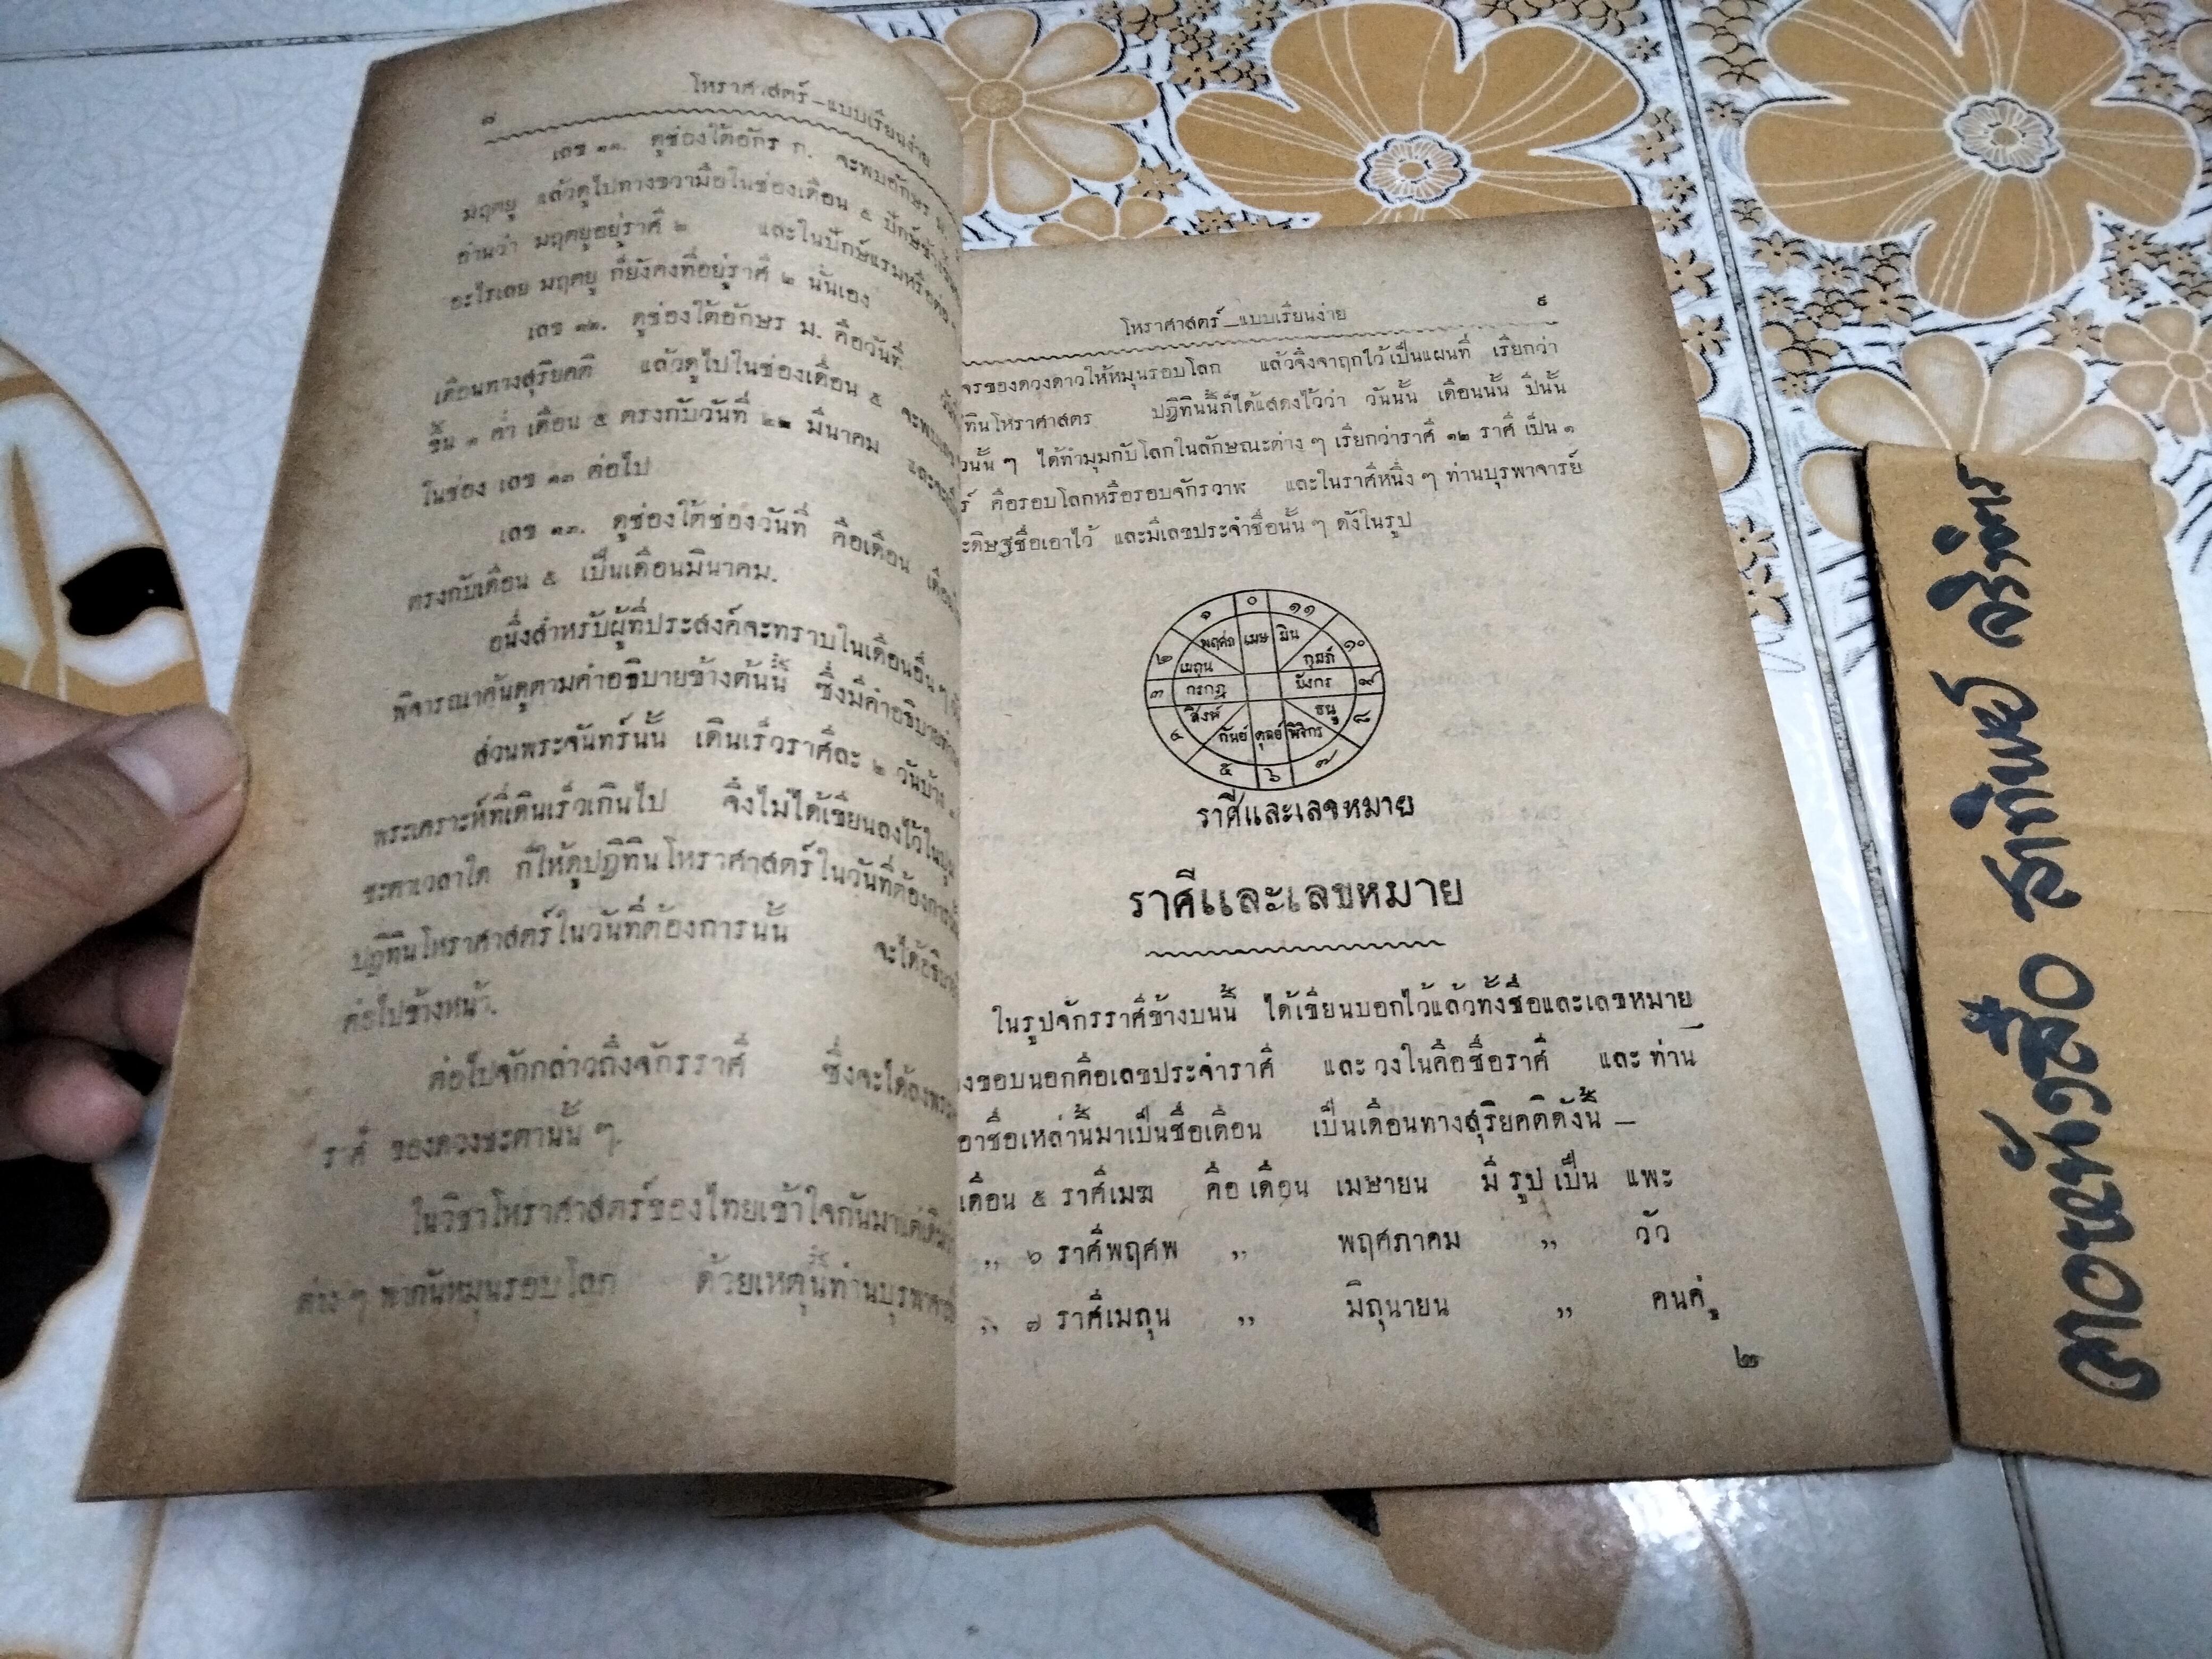 ๘ โหราศาสตร์—แบบเรียนง่าย
เลข ๑๑. ดูช่องใต้อักร ก. จะพบอักษร ม.
มฤตยู แล้วดูไปทางขวามือในช่องเดือน ๕ ปักษ์ข้างขึ้น
อ่านว่า มฤตยูอยู่ราศี ๒ และในปักษ์แรมหรือต่อ
อะไรเลย มฤตยู ก็ยังคงที่อยู่ราศี ๒ นั่นเอง
เลข ๑๒. ดูช่องใต้อักษร ม. คือวันที่
เดือนทางสุริยคติ แล้วดูไปในช่องเดือน ๕ จะพบเลข
ขึ้น ๑ ค่ำ เดือน ๕ ตรงกับวันที่ ๒๒ มีนาคม
ในช่อง เลข ๑๓ ต่อไป
เลข ๑๓. ดูช่องใต้ช่องวันที่ คือเดือน
ตรงกับเดือน ๕ เป็นเดือนมีนาคม.
อนึ่งสำหรับผู้ที่ประสงค์จะทราบในเดือนอื่น ๆ
พิจารณาค้นดูตามคำอธิบายข้างต้นนี้ ซึ่งมีคำอธิบาย
ส่วนพระจันทร์นั้น เดินเร็วราศีละ ๒ วันบ้าง
พระเคราะห์ที่เดินเร็วเกินไป จึงไม่ได้เขียนลงไว้ใน
ชะตาเวลาใด ก็ให้ดูปฏิทินโหราศาสตร์ในวันที่ต้องการ
ปฏิทินโหราศาสตร์ในวันที่ต้องการนั้น จะได้อธิบาย
ต่อไปข้างหน้า.
ต่อไปจักกล่าวถึงจักรราศี ซึ่งจะได้ลง
ราศี ของดวงชะตานั้น ๆ.
ในวิชาโหราศาสตร์ของไทยเข้าใจกันมาแต่เดิม
ต่าง ๆ พากันหมุนรอบโลก ด้วยเหตุนี้ท่านบุรพาจารย์
โหราศาสตร์—แบบเรียนง่าย ๙
จรของดวงดาวให้หมุนรอบโลก แล้วจึงจาฤกไว้เป็นแผนที่ เรียกว่า
ทินโหราศาสตร ปฏิทินนี้ก็ได้แสดงไว้ว่า วันนั้น เดือนนั้น ปีนั้น
วนั้น ๆ ได้ทำมุมกับโลกในลักษณะต่าง ๆ เรียกว่าราศี ๑๒ ราศี เป็น ๑
ร์ คือรอบโลกหรือรอบจักรวาฬ และในราศีหนึ่ง ๆ ท่านบุรพาจารย์
ะดิษฐชื่อเอาไว้ และมีเลขประจำชื่อนั้น ๆ ดังในรูป
๑ ๐ ๑๑
พฤศภ เมษ มิน
๒ เมถุน กุมภ์ ๑๐
๓ กรกฎ มังกร ๙
๔ สิงห์ ธนู ๘
กันย์ ตุลย์ พิจิกร
๕ ๖ ๗
ราศีและเลขหมาย
ราศีและเลขหมาย
ในรูปจักรราศีข้างบนนี้ ได้เขียนบอกไว้แล้วทั้งชื่อและเลขหมาย
งขอบนอกคือเลขประจำราศี และ วงในคือชื่อราศี และ ท่าน
อาชื่อเหล่านี้มาเป็นชื่อเดือน เป็นเดือนทางสุริยคติดังนี้ —
เดือน ๕ ราศีเมษ คือ เดือน เมษายน มี รูป เป็น แพะ
,, ๖ ราศีพฤศพ ,, พฤศภาคม ,, วัว
,, ๗ ราศีเมถุน ,, มิถุนายน ,, คนคู่
๒
ลาวขายหนังสือ